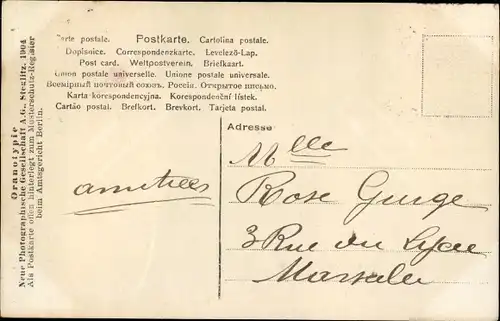 Oranotypie
Neue Photographische Gesellschaft A.G., Steglitz. 1904
Als Postkarte offen hinterlegt zum Musterschutz-Register
beim Amtsgericht Berlin.
Carte postale. Postkarte. Cartolina postale.
Dopisnice. Correspondenzkarte. Levelező-Lap.
Post card. Weltpostverein. Briefkaart.
Union postale universelle. Unione postale universale.
Всемірный почтовый союзъ. Россія. Открытое письмо.
Karta korespondencyjna. Korespondenční lístek.
Cartão postal. Brefkort. Brevkort. Tarjeta postal.
Adresse
amitiées
Mlle
Rose Gurge
3 Rue du Lycée
Marseille